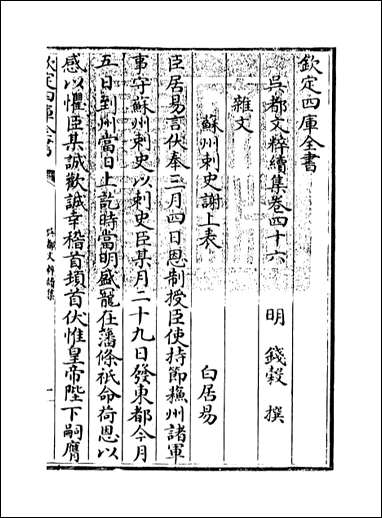 欽定四庫全書
吳都文粹續集卷四十六
明 錢穀 撰
雜文
蘇州刺史謝上表
白居易
臣居易言伏奉三月四日恩制授臣使持節蘓州諸軍
事守蘇州刺史以刺史臣某月二十九日發東都今月
五日到州當日上訖時當明盛寵在藩條祇命荷恩以
感以懼臣某誠歡誠幸稽首頓首伏惟皇帝陛下嗣膺
欽定四庫全書
吳都文粹續集
一